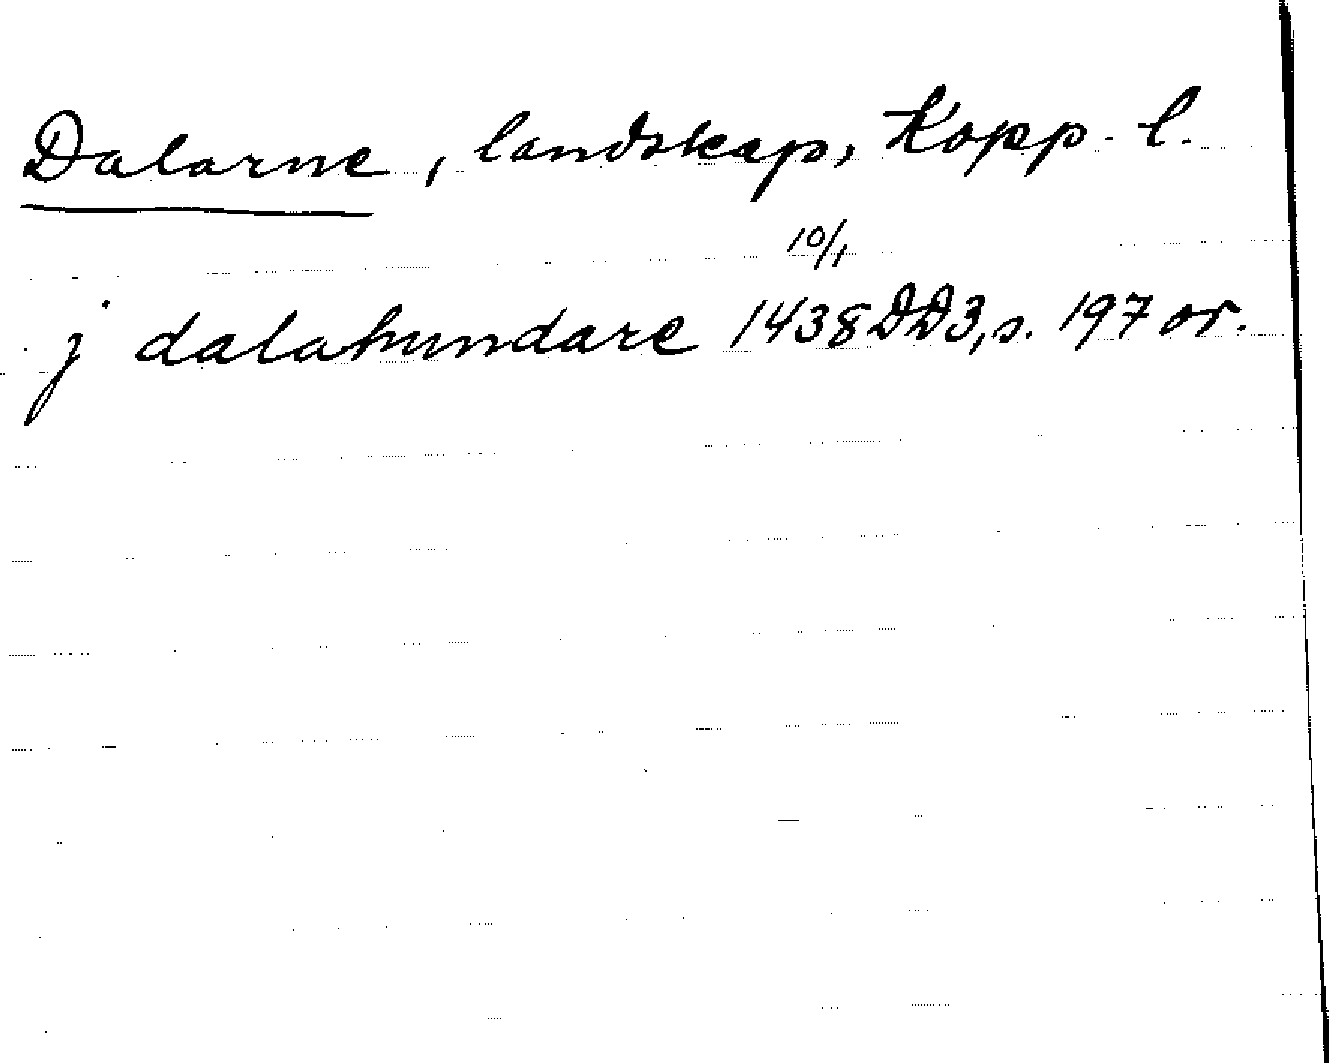 Dalarne, landskap, Kopp. l.
10/1
j dalahundare 1438 DD3, s. 197 or.